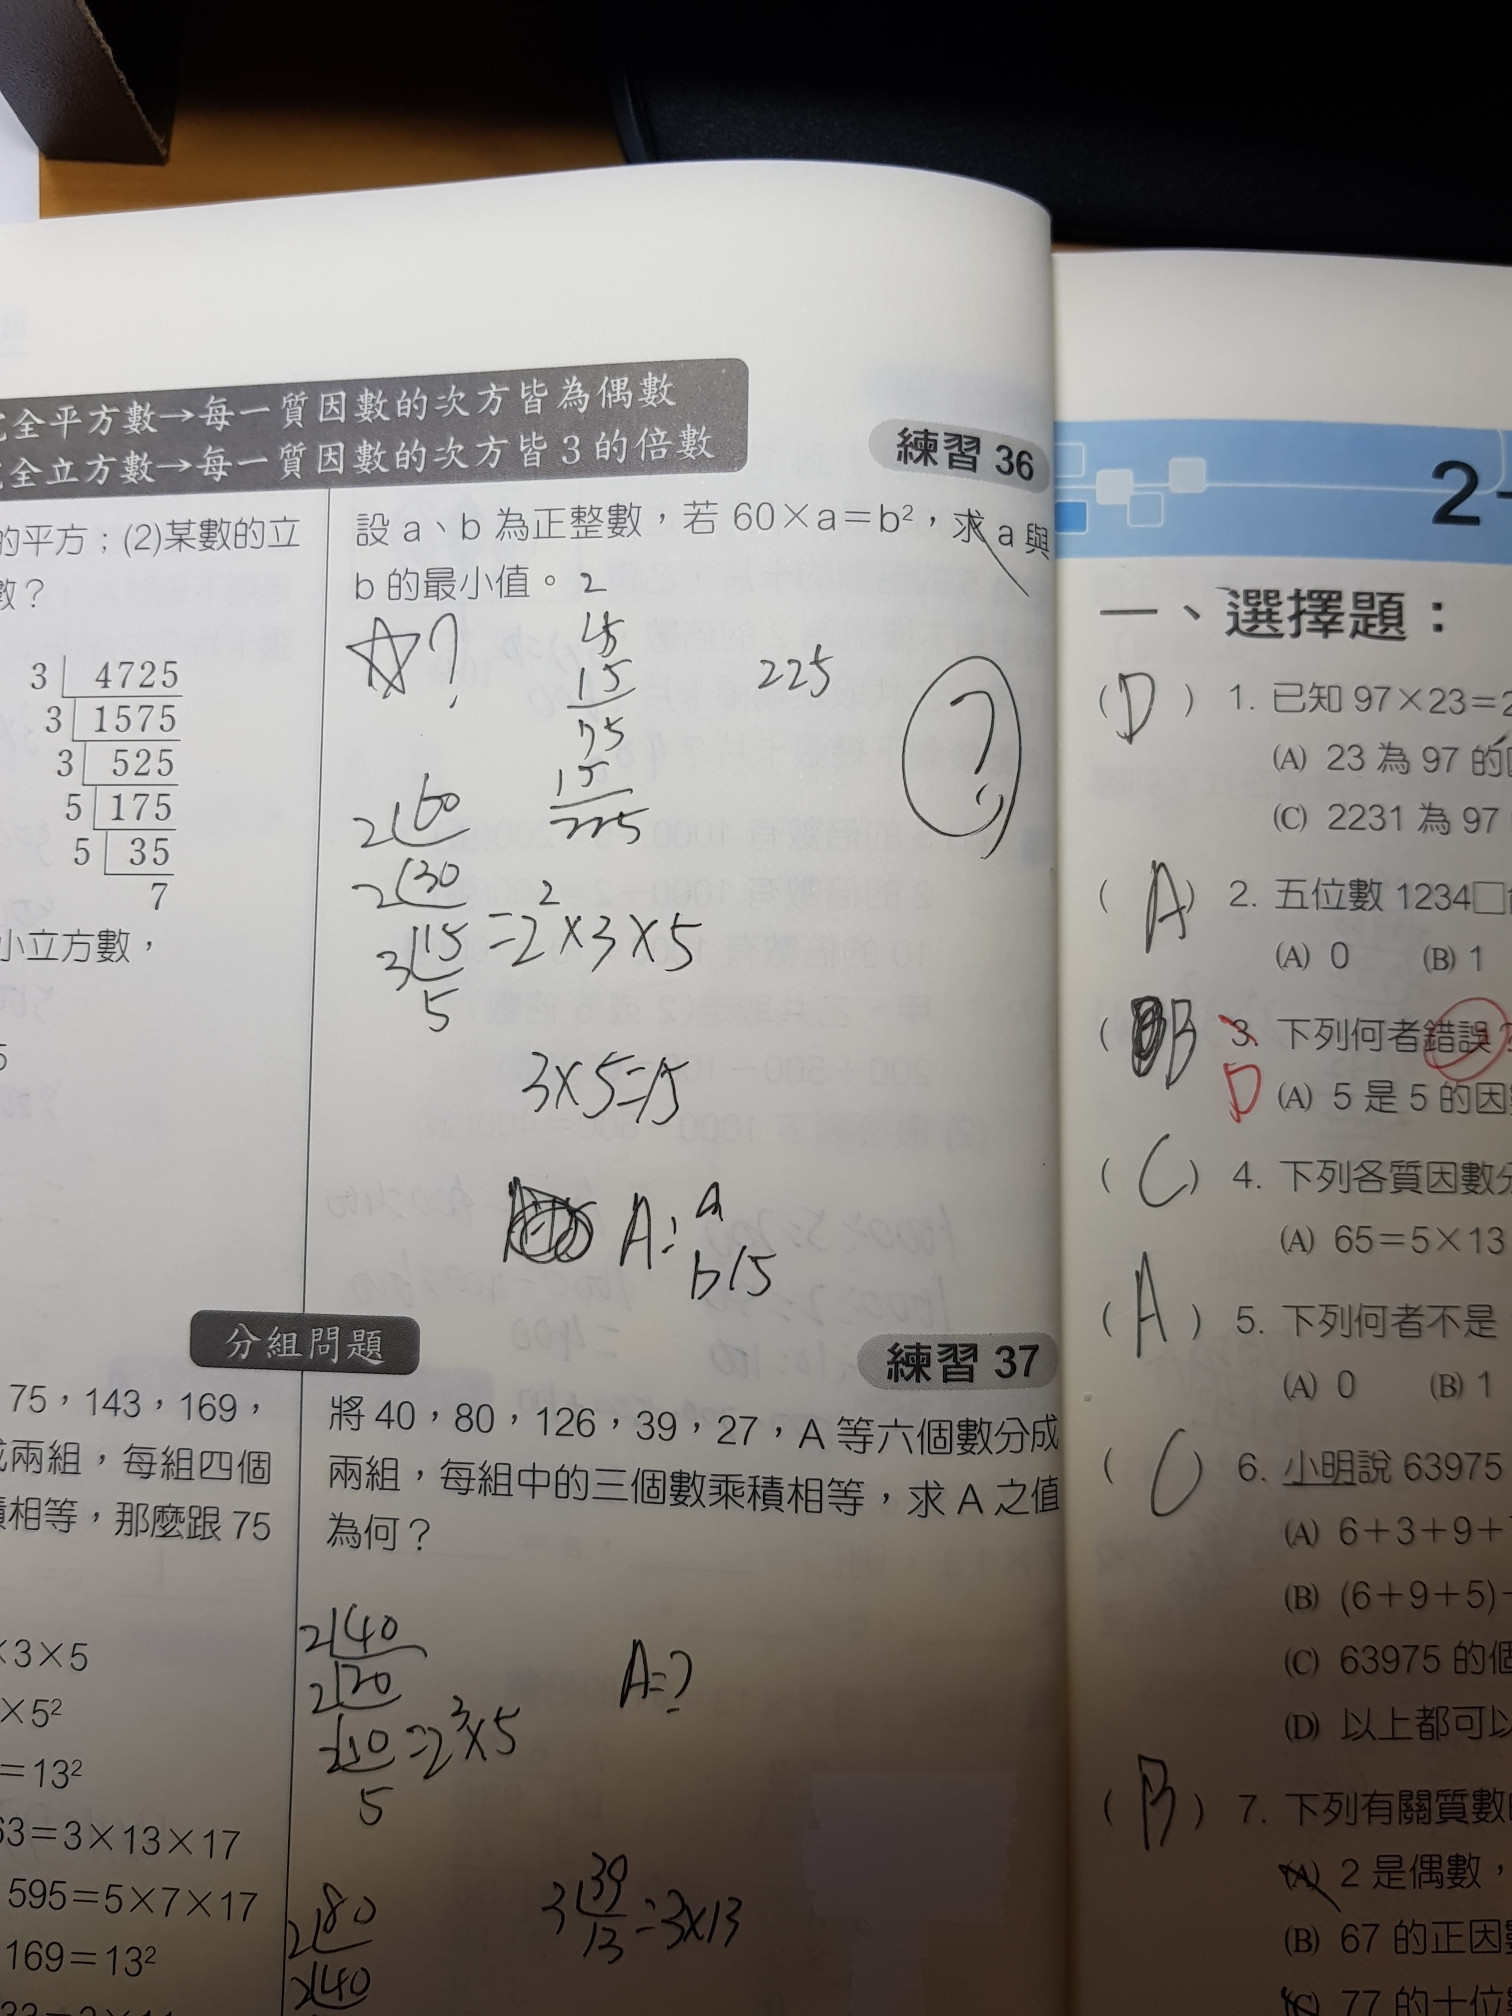 全平方數→每一質因數的次方皆為偶數
全立方數→每一質因數的次方皆3的倍數
的平方；(2)某數的立
數？
3 4725
3 1575
3 525
5 175
5 35
7
小立方數，
5
練習 36
設 a、b 為正整數，若 60×a=b²，求 a 與
b 的最小值。
2
15
15
75
15
225
225
?
?
2 60
2 30
3 15 =2²×3×5
5
3×5=15
A: a
b 15
分組問題
75，143，169，
成兩組，每組四個
積相等，那麼跟 75
×3×5
×5²
=13²
63=3×13×17
595=5×7×17
169=13²
練習 37
將 40，80，126，39，27，A 等六個數分成
兩組，每組中的三個數乘積相等，求 A 之值
為何？
2 40
2 20
2 10 =2³×5
5
A=?
2 80
2 40
3 39 =3×13
13
2-
一、選擇題：
( D ) 1. 已知 97×23=2
(A) 23 為 97 的因
(C) 2231 為 97
( A ) 2. 五位數 1234□
(A) 0 (B) 1
( B 3. 下列何者錯誤?
D (A) 5 是 5 的因
( C ) 4. 下列各質因數分
(A) 65=5×13
( A ) 5. 下列何者不是
(A) 0 (B) 1
( C ) 6. 小明說 63975
(A) 6+3+9+
(B) (6+9+5)-
(C) 63975 的個
(D) 以上都可以
( B ) 7. 下列有關質數
(A) 2 是偶數，
(B) 67 的正因數
(C) 77 的十位